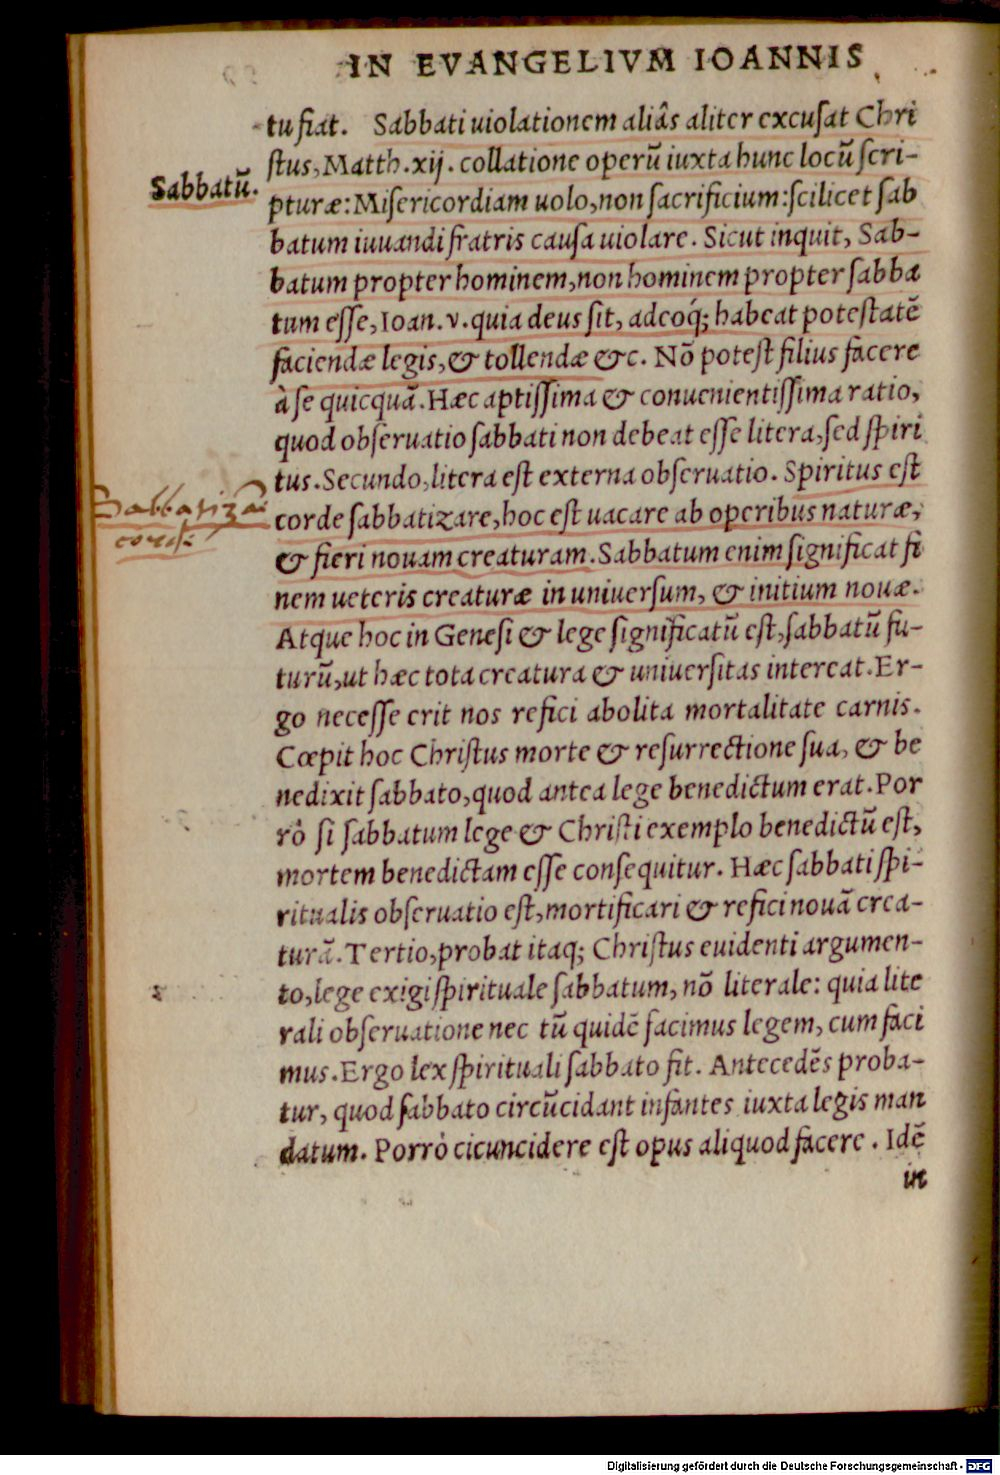 IN EVANGELIVM IOANNIS
tu fiat. Sabbati uiolationem aliâs aliter excuſat Chri
ſtus, Matth. xij. collatione operũ iuxta hunc locũ ſcri-
Sabbatũ.
pturæ: Miſericordiam uolo, non ſacrificium: ſcilicet ſab
batum iuuandi fratris cauſa uiolare. Sicut inquit, Sab-
batum propter hominem, non hominem propter ſabba
tum eſſe, Ioan. v. quia deus ſit, adcoq́; habeat poteſtatẽ
faciendæ legis, & tollendæ &c. Nõ poteſt filius facere
à ſe quicquã. Hæc aptiſſima & conuenientiſſima ratio,
quod obſeruatio ſabbati non debeat eſſe litera, ſed ſpiri
tus. Secundo, litera eſt externa obſeruatio. Spiritus eſt
Sabbatizare
cordis
corde ſabbatizare, hoc eſt uacare ab operibus naturæ,
& fieri nouam creaturam. Sabbatum enim ſignificat fi
nem ueteris creaturæ in uniuerſum, & initium nouæ.
Atque hoc in Geneſi & lege ſignificatũ eſt, ſabbatũ fu-
turũ, ut hæc tota creatura & uniuerſitas intereat. Er-
go neceſſe erit nos refici abolita mortalitate carnis.
Cœpit hoc Chriſtus morte & reſurrectione ſua, & be
nedixit ſabbato, quod antea lege benedictum erat. Por
rò ſi ſabbatum lege & Chriſti exemplo benedictũ eſt,
mortem benedictam eſſe conſequitur. Hæc ſabbati ſpi-
ritualis obſeruatio eſt, mortificari & refici nouã crea-
turã. Tertio, probat itaq; Chriſtus euidenti argumen-
to, lege exigi ſpirituale ſabbatum, nõ literale: quia lite
rali obſeruatione nec tũ quidẽ facimus legem, cum faci
mus. Ergo lex ſpirituali ſabbato fit. Antecedẽs proba-
tur, quod ſabbato circũcidant infantes iuxta legis man
datum. Porrò cicuncidere eſt opus aliquod facere. Idẽ
in
Digitalisierung gefördert durch die Deutsche Forschungsgemeinschaft - DFG